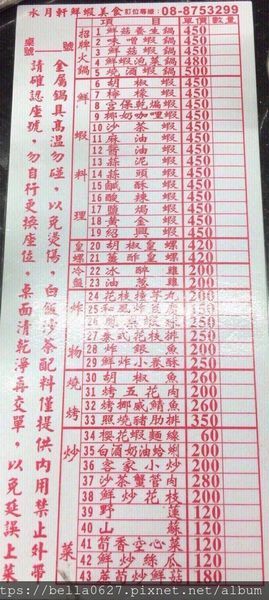 水月軒鮮蝦美食 訂位專線：08-8753299
桌號
號
項目
單價
數量
招牌火鍋
1 鮮菇養生鍋 450
2 味噌蝦鍋 450
3 鮮菇蝦鍋 450
4 鮮蝦泡菜鍋 480
5 燒酒蝦鍋 500
鮮蝦料理
6 胡椒蝦 450
7 檸檬蝦 450
8 宮保乾煸蝦 450
9 椰奶咖哩蝦 450
10 沙茶蝦 450
11 麻油蝦 450
12 醬油蝦 450
13 蒜泥蝦 450
14 蒜頭蝦 450
15 鹹酥蝦 450
16 酸辣蝦 450
17 鹽焗蝦 450
18 黃金蝦 450
19 紹興蝦 450
皇螺
20 胡椒皇螺 420
21 薑酥皇螺 420
冷盤
22 冰醉雞 200
23 油蔥雞 200
炸物
24 花枝撞芽丸 200
25 和風炸豆腐
26
27 泰式花枝排 250
28 水銀魚 200
29 鮮炸小卷酥 250
燒烤
30 胡椒魚 260
31 烤五花肉 200
32 烤挪威鯖魚 260
33 照燒豬肋排 350
炒菜
34 櫻花蝦麵線 60
35 白酒奶油蛤蜊 200
36 客家小炒 200
37 沙茶蟹管肉 280
38 鮮炒花枝 200
39 野蓮 120
40 山蘇 120
41 筍香空心菜 120
42 鮮炒絲瓜 120
43 蘆筍炒鮮菇 180
金屬鍋具高溫勿碰，以免燙傷，白飯沙茶配料僅提供內用禁止外帶
請確認座號，勿自行更換座位，桌面清乾淨再交單，以免延誤上菜
https://bella0627.pixnet.net/album